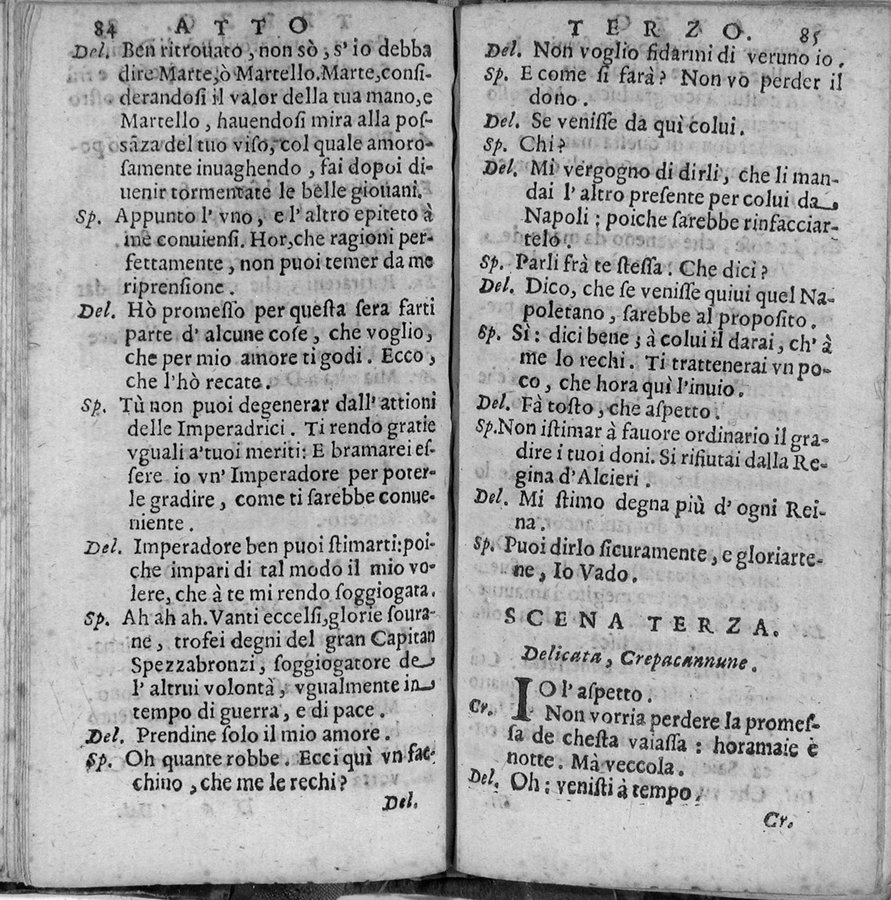 84 ATTO
Del. Ben ritrouato, non sò, s' io debba
dire Marte,ò Martello.Marte,conſi-
derandoſi il valor della tua mano,e
Martello, hauendoſi mira alla poſ-
sāza del tuo viſo, col quale amoro-
ſamente inuaghendo, fai dopoi di-
uenir tormentate le belle giouani.
Sp. Appunto l' vno, e l' altro epiteto à
me conuienſi. Hor,che ragioni per-
fettamente, non puoi temer da me
riprenſione.
Del. Hò promeſſo per queſta ſera farti
parte d' alcune coſe, che voglio,
che per mio amore ti godi. Ecco,
che l'hò recate.
Sp. Tù non puoi degenerar dall' attioni
delle Imperadrici. Ti rendo gratie
vguali a'tuoi meriti: E bramarei eſ-
ſere io vn' Imperadore per poter-
le gradire, come ti ſarebbe conue-
niente.
Del. Imperadore ben puoi ſtimarti:poi-
che impari di tal modo il mio vo-
lere, che à te mi rendo ſoggiogata.
Sp. Ah ah ah. Vanti eccelſi,glorie ſoura-
ne, trofei degni del gran Capitan
Spezzabronzi, ſoggiogatore de
l' altrui volontà, vgualmente in
tempo di guerra, e di pace.
Del. Prendine ſolo il mio amore.
Sp. Oh quante robbe. Ecci quì vn fac-
chino, che me le rechi?
Del.
TERZO. 85
Del. Non voglio fidarmi di veruno io.
Sp. E come ſi farà? Non vo perder il
dono.
Del. Se veniſſe da quì colui.
Sp. Chi?
Del. Mi vergogno di dirli, che li man-
dai l' altro preſente per colui da
Napoli; poiche ſarebbe rinfacciar-
telo.
Sp. Parli frà te ſteſſa. Che dici?
Del. Dico, che ſe veniſſe quiui quel Na-
poletano, ſarebbe al propoſito.
Sp. Sì: dici bene; à colui il darai, ch' à
me lo rechi. Ti trattenerai vn po-
co, che hora quì l'inuio.
Del. Fà toſto, che aſpetto.
Sp.Non iſtimar à fauore ordinario il gra-
dire i tuoi doni. Si rifiutai dalla Re-
gina d'Alcieri.
Del. Mi ſtimo degna più d' ogni Rei-
na.
Sp. Puoi dirlo ſicuramente, e gloriarte-
ne, Io Vado.
SCENA TERZA.
Delicata, Crepacannune.
IO l' aſpetto.
Cr. Non vorria perdere la promeſ-
ſa de cheſta vaiaſſa: horamaie è
notte. Mà veccola.
Del. Oh; veniſti à tempo,
Cr.